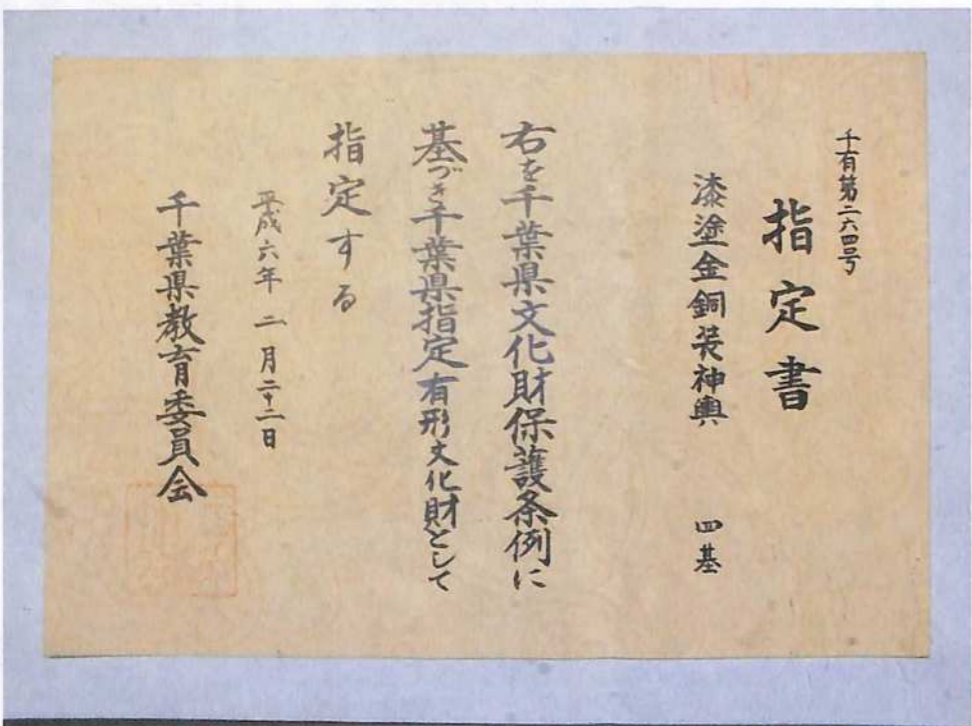 千有第二六四号
指定書
漆塗金銅装神輿 四基
右を千葉県文化財保護条例に
基づき千葉県指定有形文化財として
指定する
平成六年二月二十二日
千葉県教育委員会